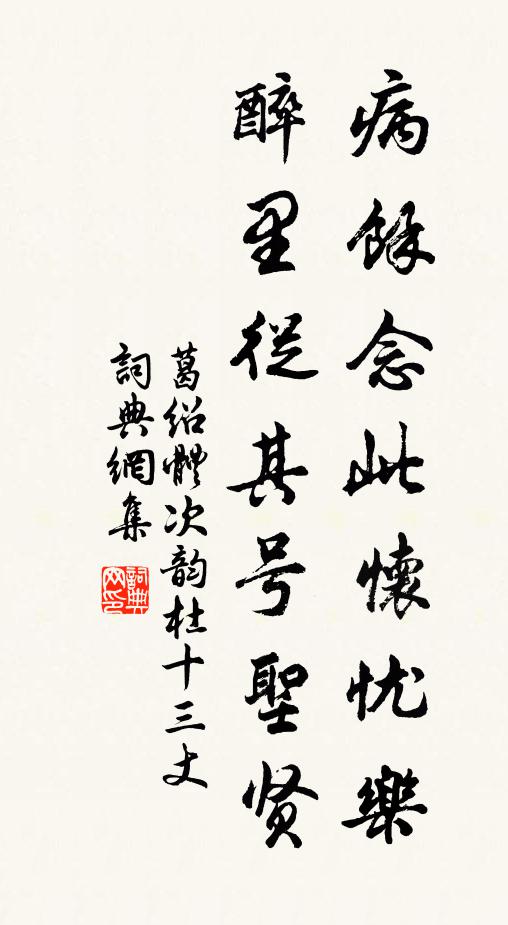 病餘念此懷忧樂
醉里從其号聖贤
葛绍體次韵杜十三丈
詞典網集
詞典網印